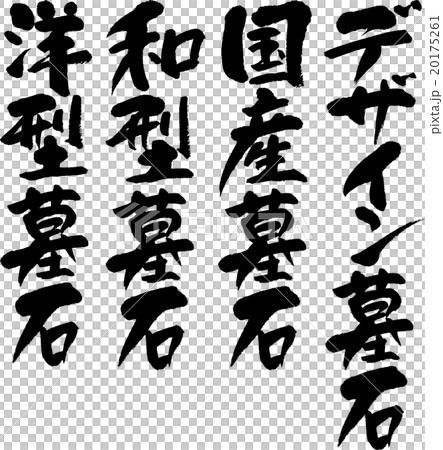 デザイン墓石
国産墓石
和型墓石
洋型墓石
PIXTA
pixta.jp - 20175261